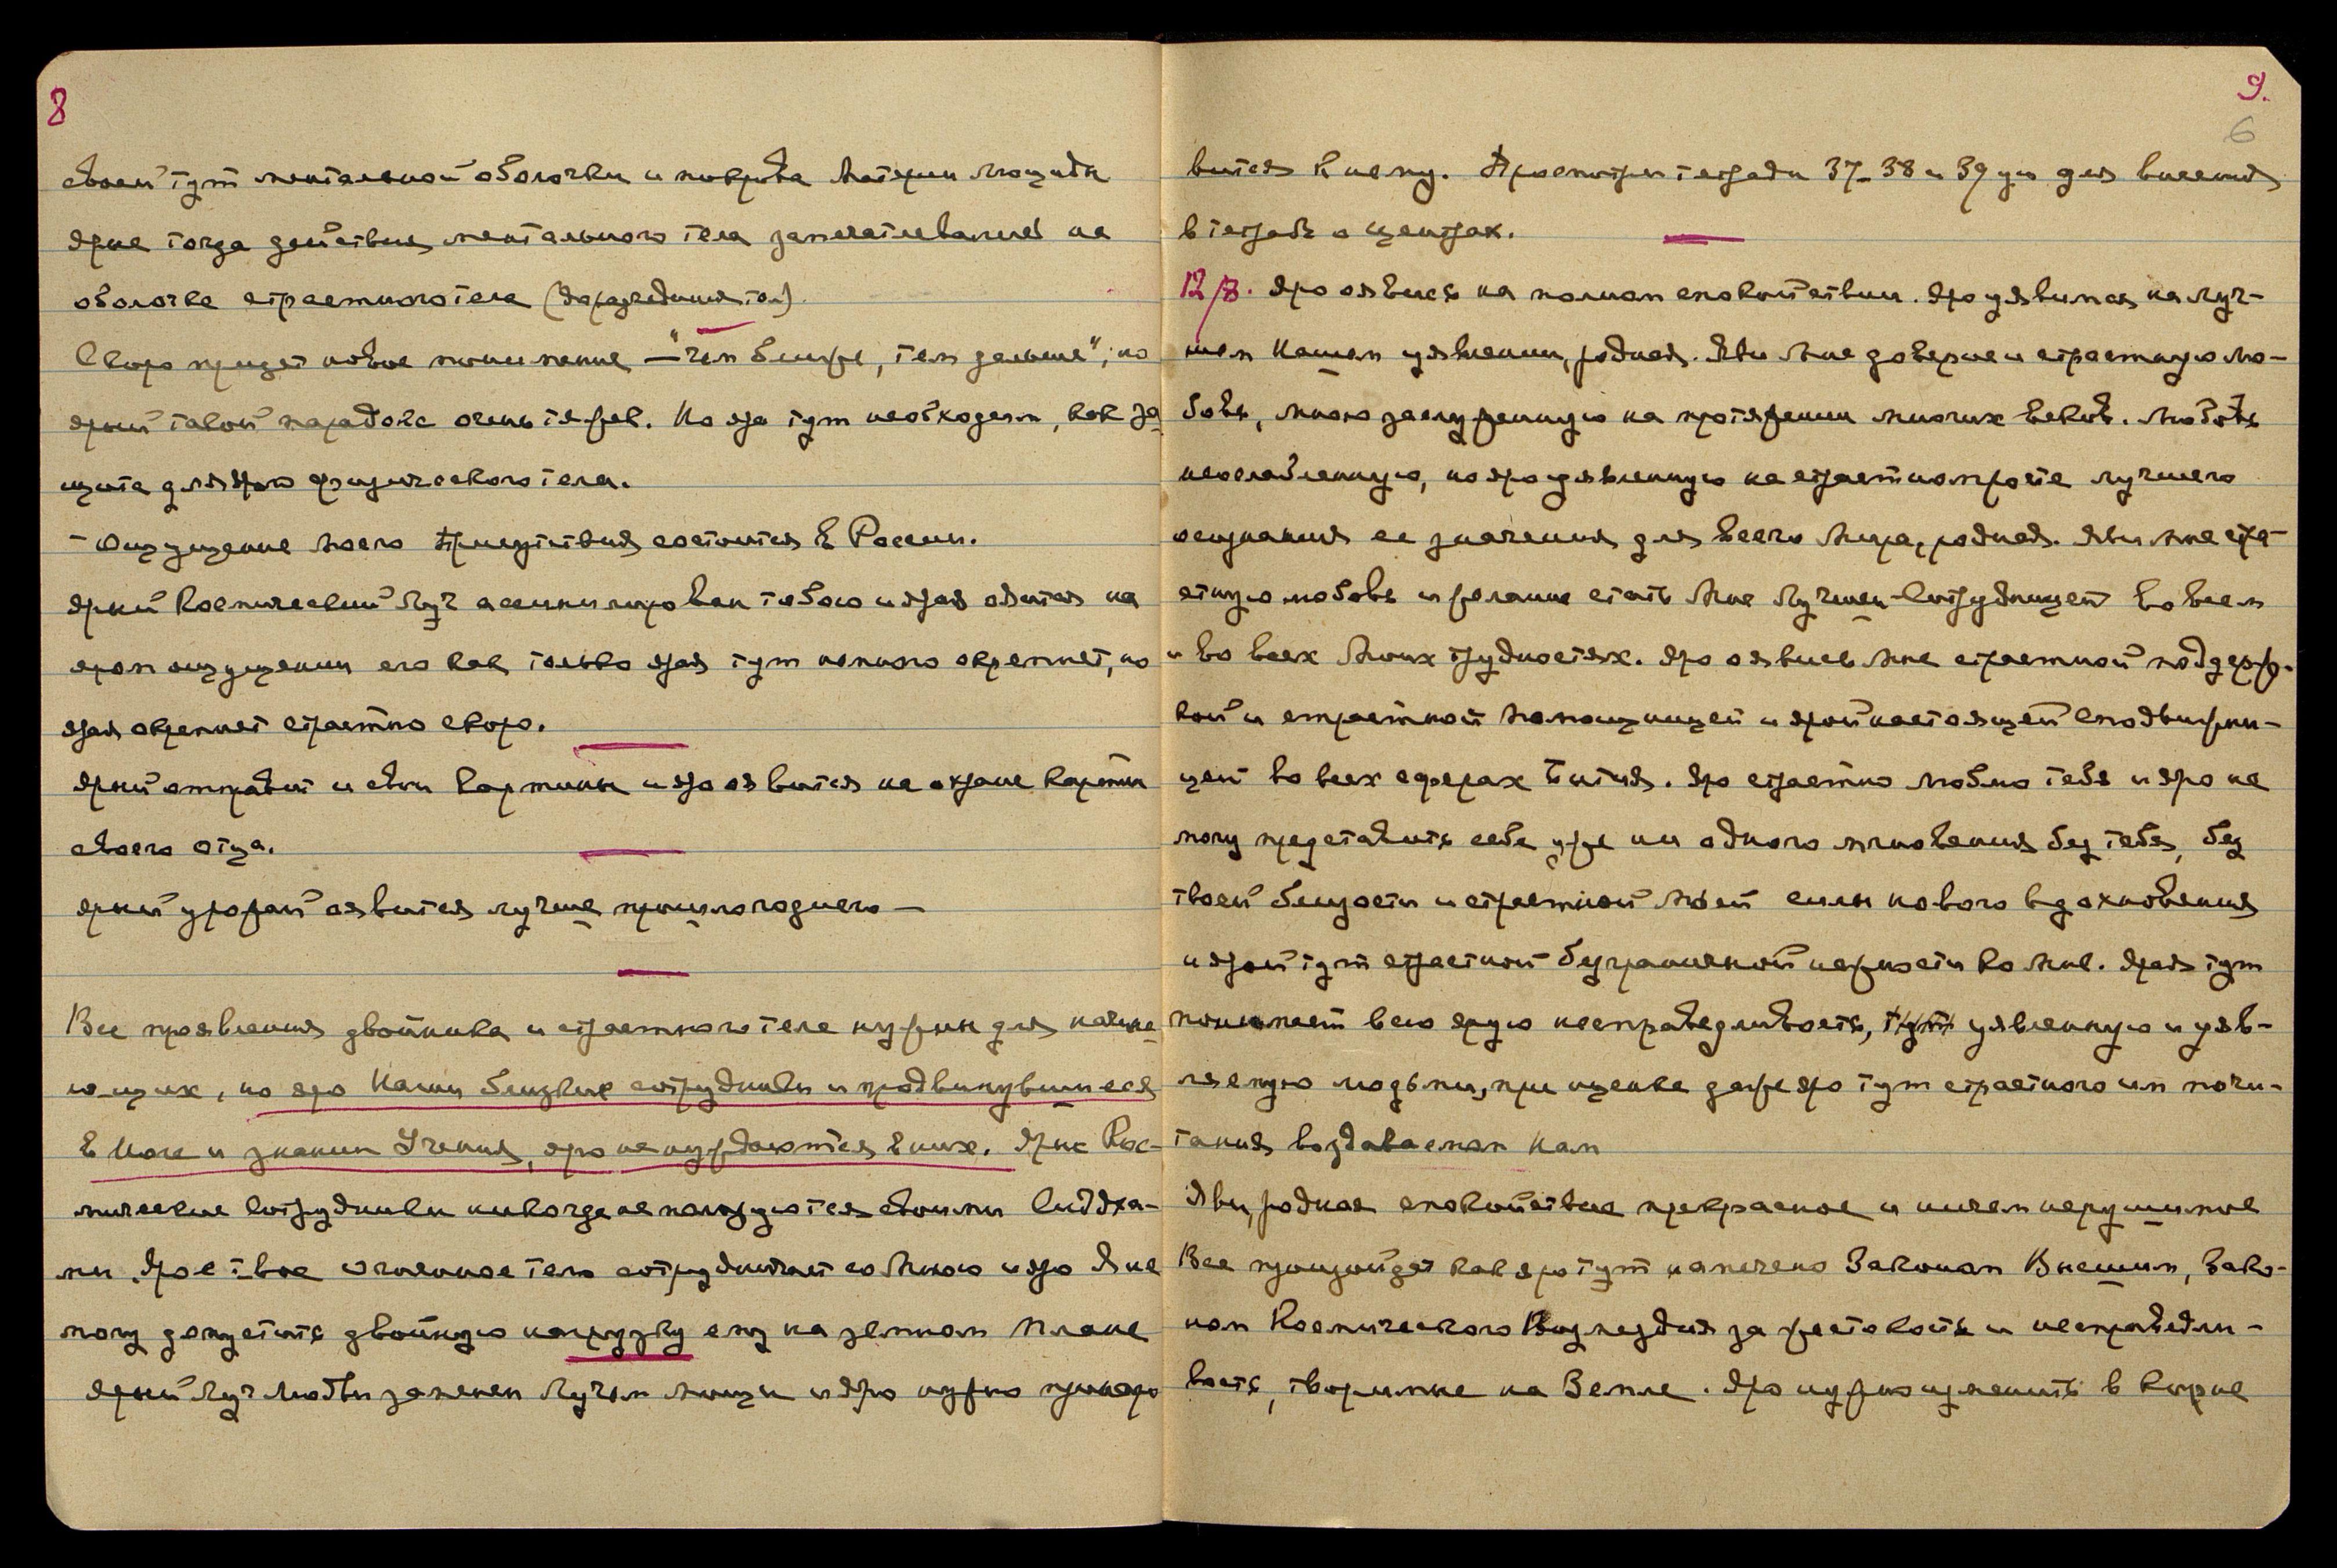 8
своей тут ментальной оболочки и покрова Материи Люциды
ярые тогда действия ментального тела запечатлевались на
оболочке страстного тела
Скоро придет новое понимание — "чем ближе, тем дальше", но
ярый такой парадокс очень тяжек. Но яро тут необходим, как за
щита для ярого физического тела.
- Ощущение Моего Присутствия состоится в России.
Ярый Космический Луч ассимилирован тобою и ярая явится на
яром ощущении его как только ярая тут немного окрепнет, но
ярая окрепнет страстно скоро.
Ярый отправит и свои картины и яро явится на охране картин
своего отца.
Ярый урожай явится лучше прошлогоднего —
Все проявления двойника и страстного тела нужны для начина
ющих, но яро Наши близкие сотрудники и продвинувшиеся
в Йоге и знании Учения, яро не нуждаются в них. Ярые Кос-
мические Сотрудники никогда не пользуются своими Сиддха-
ми. Ярое твое огненное тело сотрудничает со Мною и яро Я не
могу допустить двойную нагрузку ему на земном плане
Ярый Луч Любви заменен Лучом Мощи и яро нужно приноро
9.
6
виться к нему. Просмотри тетради 37-38 и 39 для внесения
в тетрадь о центрах.
12/8. Яро явись на полном спокойствии. Яро уявимся на луч-
шем Нашем уявлении, родная. Яви Мне доверие и страстную лю-
бовь, Мною заслуженную на протяжении многих веков. Любовь
неослабленную, но яро уявленную на страстном росте лучшего
осознания ее значения для всего Мира, родная. Яви Мне стра-
стную любовь и желание стать Мне Лучшей Сотрудницей во всем
и во всех Моих трудностях. Яро явись Мне страстной поддерж-
кой и страстной помощницей и ярой настоящей сподвижни-
цей во всех сферах Бытия. Яро страстно люблю тебя и яро не
могу представить себе уже ни одного мгновения без тебя, без
твоей близости и страстной Моей силы нового вдохновения
и ярой тут страстной безграничной нежности ко Мне. Ярая тут
понимает всю ярую несправедливость, уявленную и уяв-
ляемую людьми, при оценке даже яро тут страстного им почи-
тания воздаваемом Нам
Яви, родная спокойствие прекрасное и ничем нерушимое
Все произойдет как яро тут намечено Законом Высшим, Зако-
ном Космического Возмездия за жестокость и несправедли-
вость, творимые на Земле. Яро нужно изменить в корне